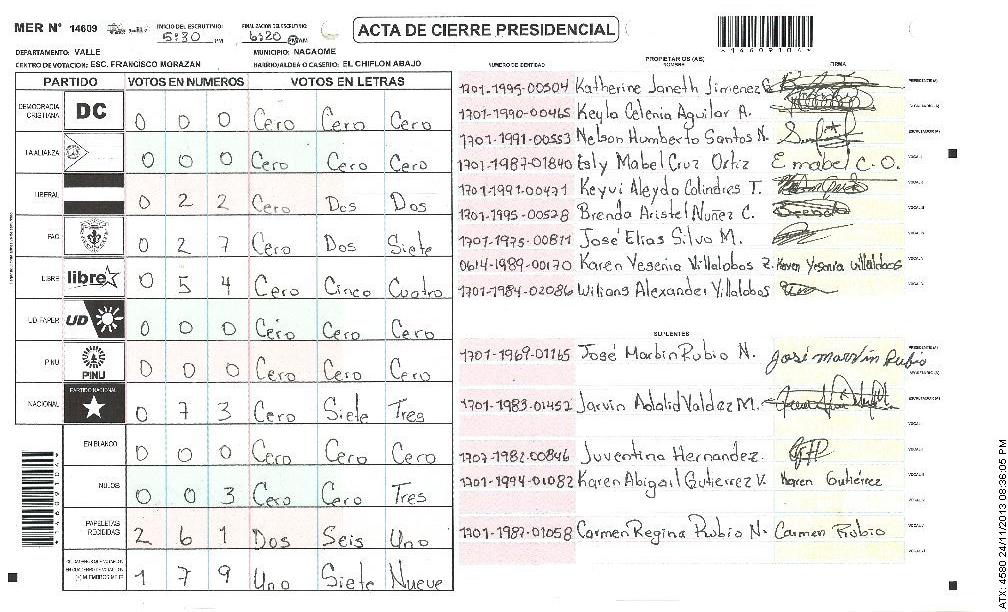 MER Nº 14609 INICIO DEL ESCRUTINIO: 5:30 PM FINALIZACION DEL ESCRUTINIO: 6:20 PM AM ACTA DE CIERRE PRESIDENCIAL
DEPARTAMENTO: VALLE MUNICIPIO: NACAOME
CENTRO DE VOTACION: ESC. FRANCISCO MORAZAN BARRIO/ALDEA O CASERIO: EL CHIFLON ABAJO
PARTIDO VOTOS EN NUMEROS VOTOS EN LETRAS
DEMOCRACIA CRISTIANA DC 0 0 0 Cero Cero Cero
LA ALIANZA 0 0 0 Cero Cero Cero
LIBERAL 0 2 2 Cero Dos Dos
PAC 0 2 7 Cero Dos Siete
LIBRE libre 0 5 4 Cero Cinco Cuatro
UD FAPER UD 0 0 0 Cero Cero Cero
PINU PINU 0 0 0 Cero Cero Cero
NACIONAL PARTIDO NACIONAL 0 7 3 Cero Siete Tres
EN BLANCO 0 0 0 Cero Cero Cero
NULOS 0 0 3 Cero Cero Tres
PAPELETAS RECIBIDAS 2 6 1 Dos Seis Uno
1 7 9 Uno Siete Nueve
PROPIETARIOS (AS)
NUMERO DE IDENTIDAD NOMBRE FIRMA
1701-1995-00504 Katherine Janeth Jimenez G PRESIDENTE(A)
1701-1990-00465 Keyla Celenia Aguilar A.
1701-1991-00553 Nelson Humberto Santos N.
1701-1987-01840 Esly Mabel Cruz Ortiz E mabel C.O.
1701-1991-00471 Keyvi Aleyda Colindres T.
1701-1995-00528 Brenda Aristel Nuñez C. Brenda
1701-1975-00811 José Elias Silva M.
0614-1989-00170 Karen Yesenia Villalobos Z. Karen Yesenia Villalobos
1701-1984-02086 Wilians Alexander Villalobos
SUPLENTES
1701-1969-01165 José Marbin Rubio N. José marvin Rubio PRESIDENTE(A)
1701-1983-01452 Jarvin Adalid Valdez M.
1707-1982-00846 Juventina Hernandez.
1701-1994-01082 Karen Abigail Gutierrez V. Karen Gutiérrez
1701-1987-01058 Carmen Regina Rubio N. Carmen Rubio
ATX: 4580 24/11/2013 08:36:05 PM